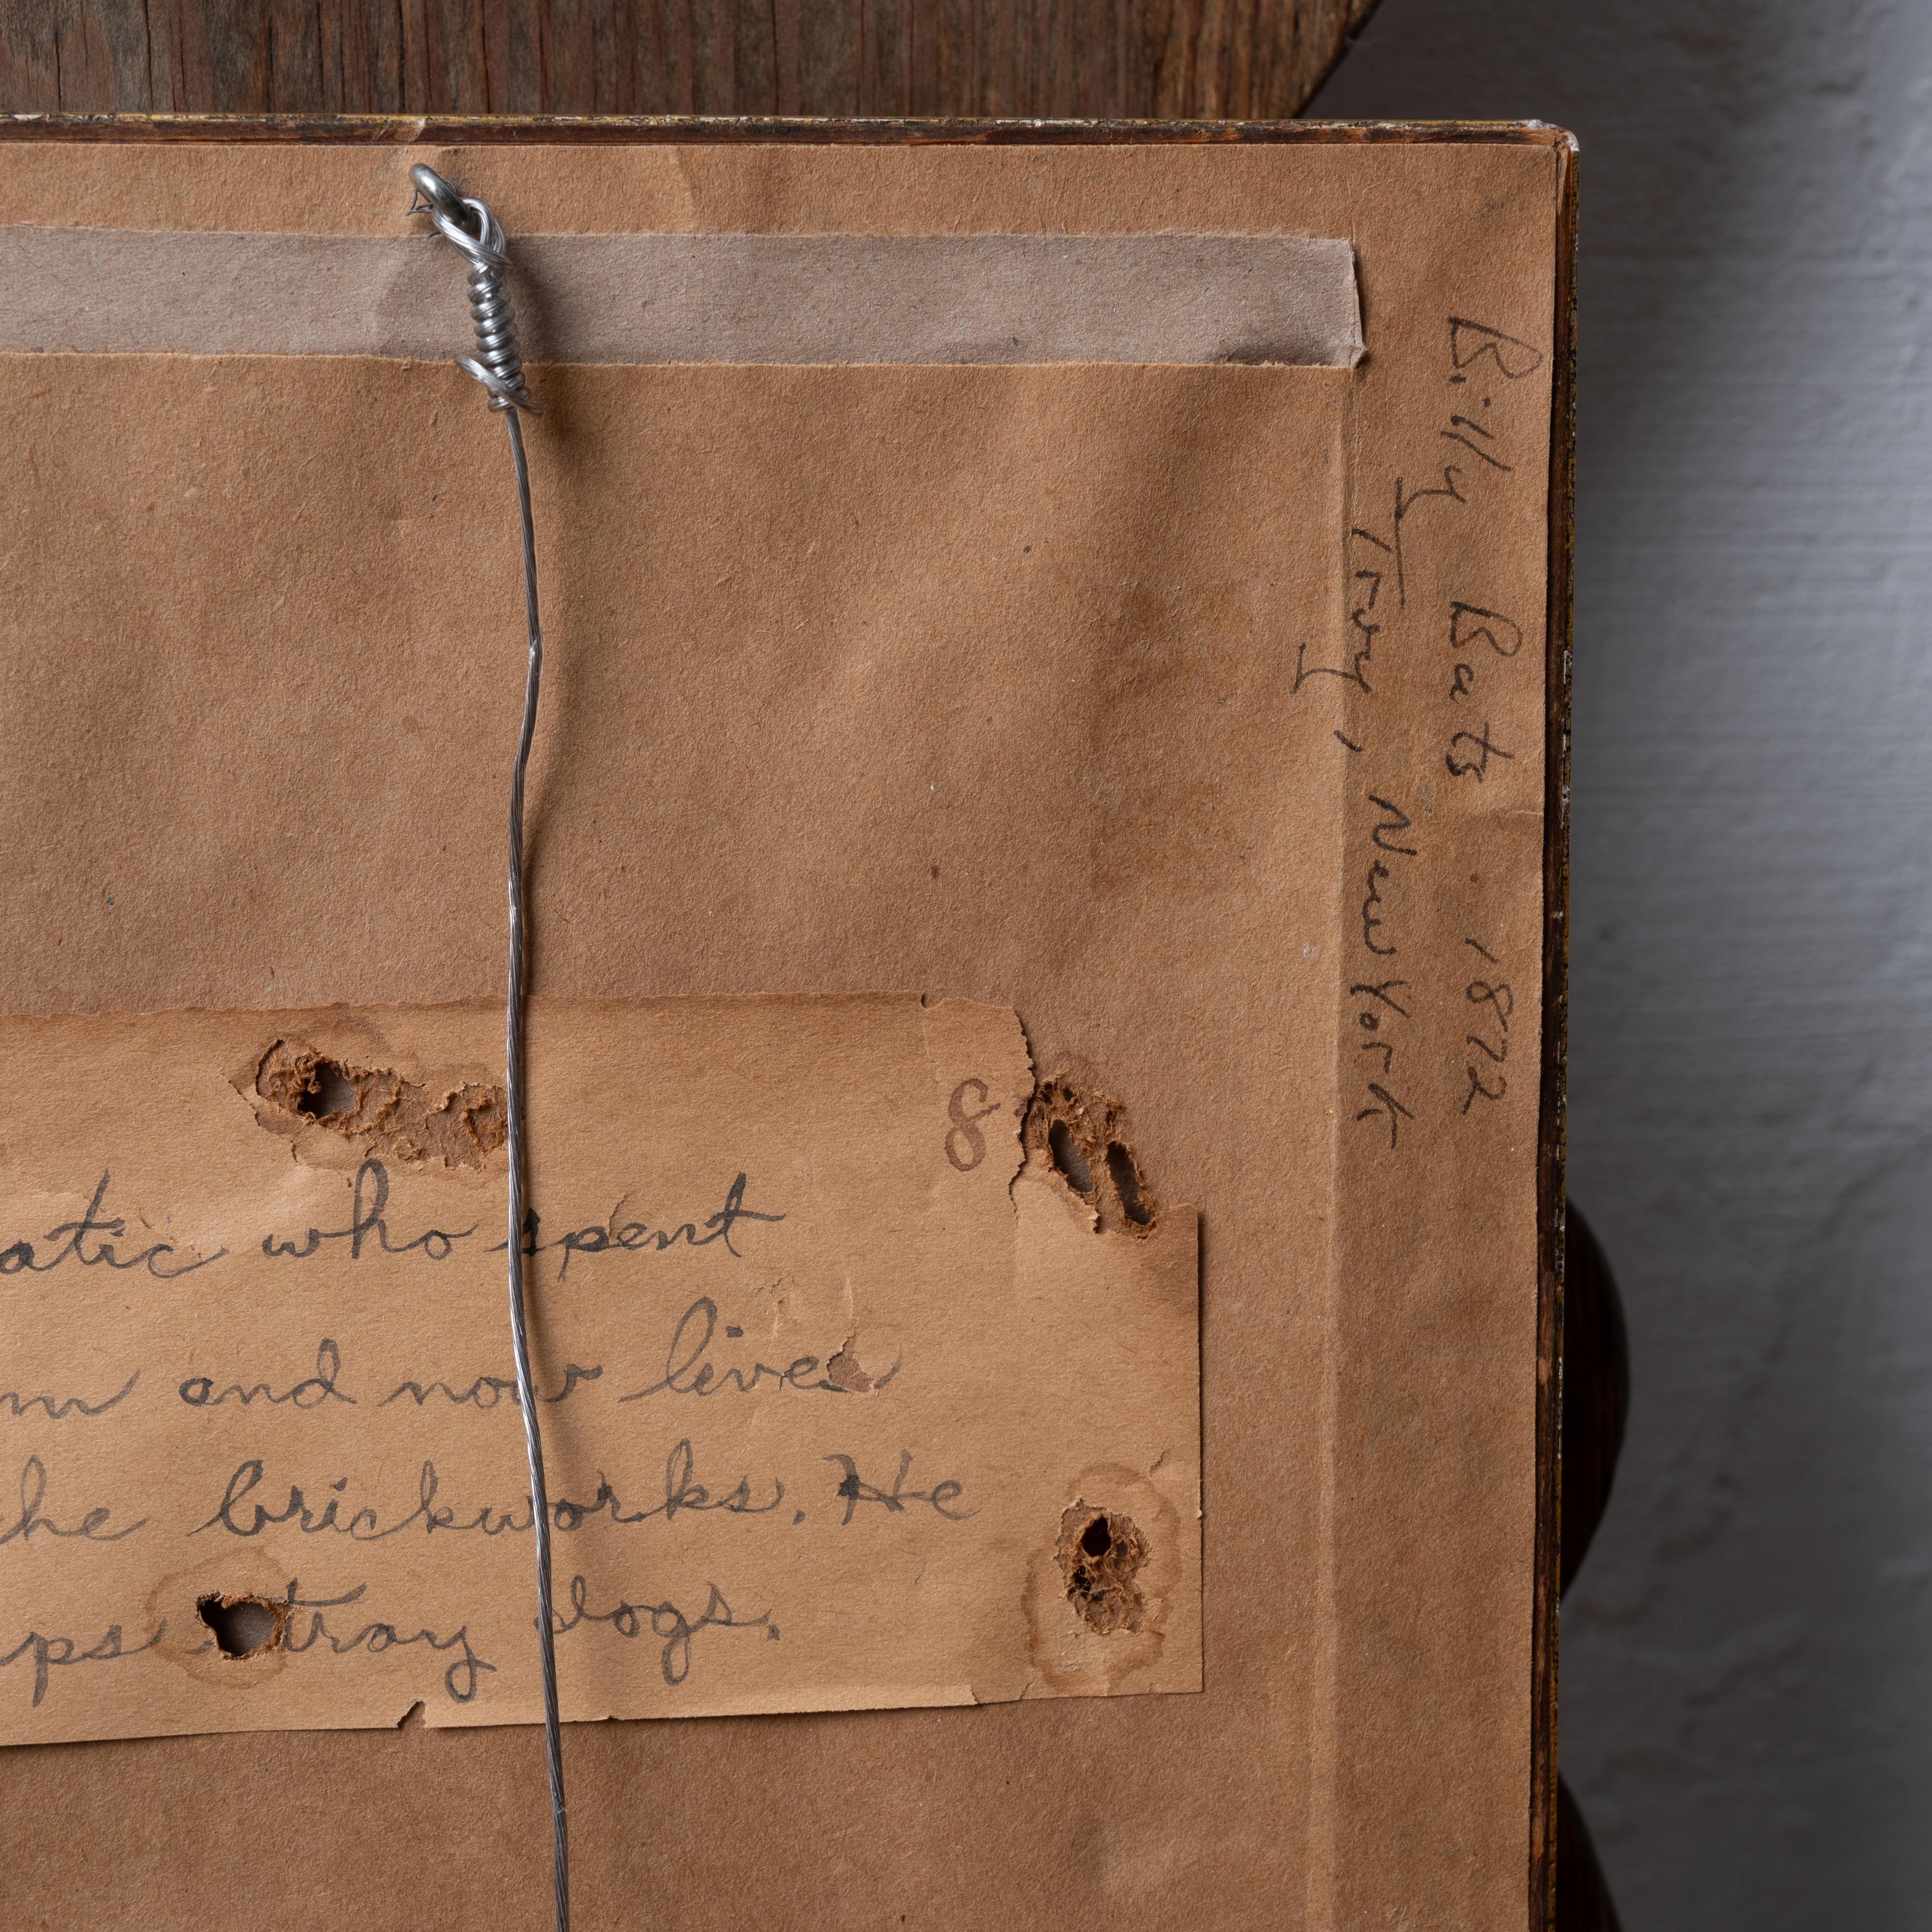 Billy Bats . 1872
Troy, New York
8
atic who spent
and now lives
he brickworks. He
ps stray dogs.